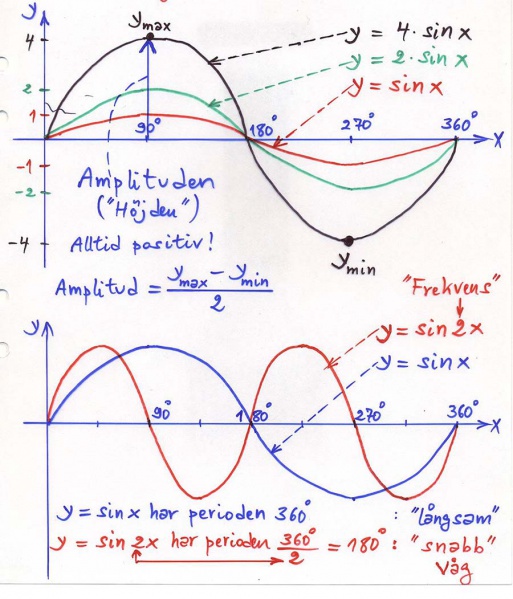 y
y max
4
y = 4 · sin x
2
y = 2 · sin x
1
y = sin x
90°
180°
270°
360°
x
-1
-2
-4
Amplituden
("Höjden")
Alltid positiv!
y min
Amplitud = (y max - y min) / 2
"Frekvens"
y
y = sin 2x
y = sin x
90°
180°
270°
360°
x
y = sin x har perioden 360° : "långsam"
y = sin 2x har perioden 360°/2 = 180° : "snabb"
våg